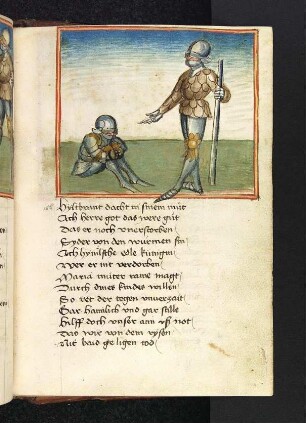 Hyltbrant dacht in sinem můt
Ach herre got das were gůt
Das er noch unerstorben
Syder von den wurmen sin
Ach hymlsche edle kunigin
Wer er nit verdorben
Maria můter raine magt
Durch dines kindes willen
So ret der tegen unverzait
Gar hainlich und gar stille
Hilff doch unser ain uß not
Das wir von dem rysen
Nit baid geligen tod